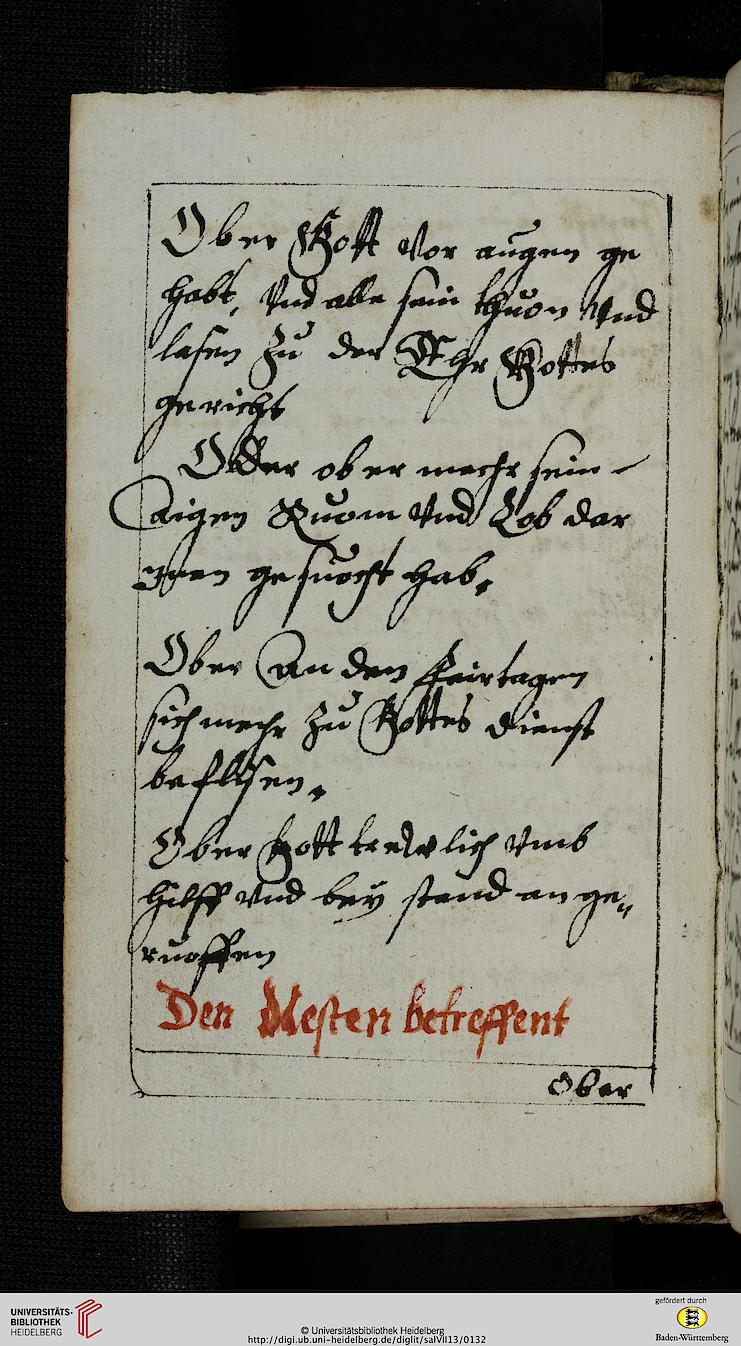 Ober Gott Vor augen ge
habt, Vnd alle sein thuon Vnd
lasen Zu der Ehr Gottes
gericht
Oder ober mechr sein
aigen Ruom Vnd Lob dar
Inen gesuocht hab.
Ober An den Feirtagen
sich mehr Zu Gottes dienst
beflisen.
Ober Gott trewlich Vmb
hilff Vnd bey stand an ge„
ruoffen
Den Nesten betreffent
Ober
UNIVERSITÄTS-
BIBLIOTHEK
HEIDELBERG
© Universitätsbibliothek Heidelberg
http://digi.ub.uni-heidelberg.de/diglit/salVII13/0132
gefördert durch
Baden-Württemberg